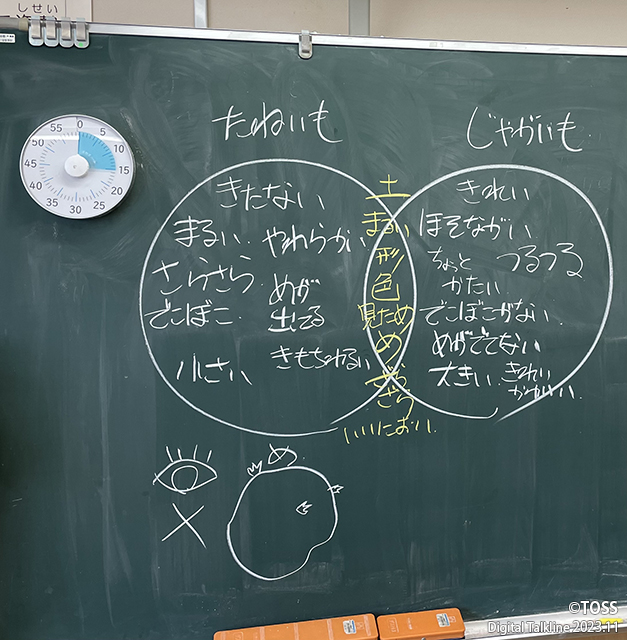 しせい
55 0 5
50 10
45 15
40 20
35 30 25
たねいも
じゃがいも
きたない
まるい やわらかい
さらさら めが
でこぼこ 出てる
小さい きもちわるい
土
まるい
形
色
見ため
め
ざら
ざら
いいにおい
きれい
ほそながい
ちょっと つるつる
かたい
でこぼこがない
めがでてない
大きい きれい
かわいい
め
©TOSS
Digital Talkline 2023.11